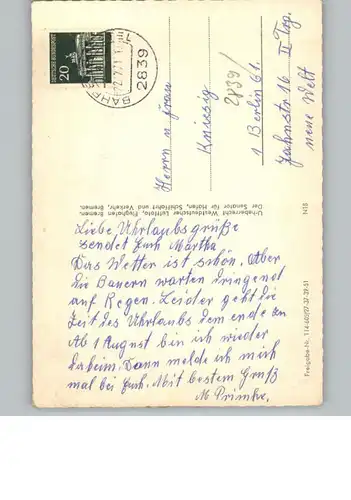 Liebe Uhrlaubsgrüße
sendet Euch Martha
Das Wetter ist schön. Aber
die Bauern warten dringend
auf Regen. Leider geht die
Zeit des Uhrlaubs dem ende zu
Ab 1 August bin ich wieder
daheim. Dann melde ich mich
mal bei Euch. Mit bestem Gruß
M Primke.
Herrn u frau
Knissig
1 Berlin 61.
Jahnstr 16 II Trp.
neue Welt
2839/
2839
20
Urheberrecht Westdeutscher Luftfoto, Flughafen Bremen.
Der Senator für Häfen, Schiffahrt und Verkehr, Bremen.
N15